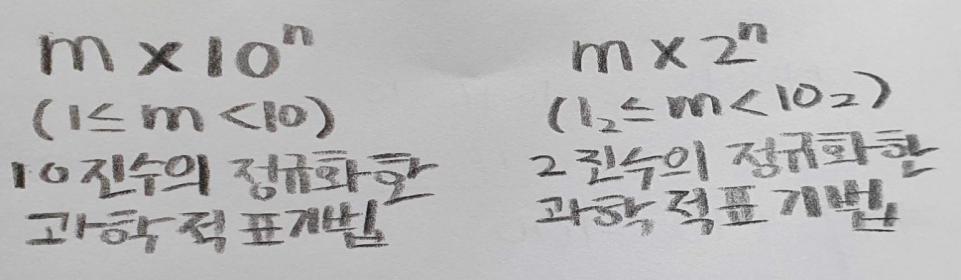 m × 10ⁿ
(1 ≤ m < 10)
10진수의 정규화한
과학적 표기법
m × 2ⁿ
(1₂ ≤ m < 10₂)
2진수의 정규화한
과학적 표기법